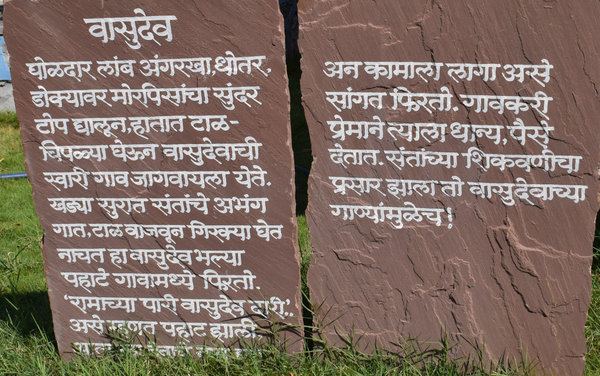 वासुदेव
घोळदार लांब अंगरखा,धोतर,
डोक्यावर मोरपिसांचा सुंदर
टोप घालून,हातात टाळ-
चिपळ्या घेऊन वासुदेवाची
स्वारी गाव जागवायला येते.
खड्या सुरात संतांचे अभंग
गात,टाळ वाजवून गिरक्या घेत
नाचत हा वासुदेव भल्या
पहाटे गावामध्ये फिरतो.
'रामाच्या पारी वासुदेव दारी'.
असे म्हणत पहाट झाली.
अन कामाला लागा असे
सांगत फिरतो. गावकरी
प्रेमाने त्याला धान्य, पैसे
देतात. संतांच्या शिकवणीचा
प्रसार झाला तो वासुदेवाच्या
गाण्यांमुळेच!